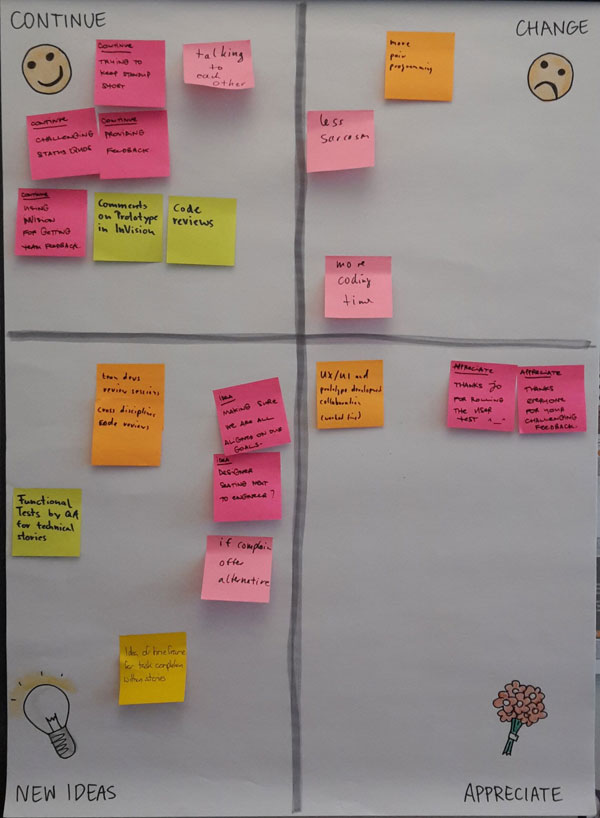 CONTINUE
CONTINUE
TRYING TO
KEEP STANDUP
SHORT
talking
to
each
other
CONTINUE
CHALLENGING
STATUS QUOS
CONTINUE
PROVIDING
FEEDBACK
CONTINUE
USING
INVISION
FOR GETTING
TEAM FEEDBACK.
Comments
on Prototype
in InVision
Code
reviews
CHANGE
more
pair
programming
less
Sarcasm
more
coding
time
team devs
review sessions
cross discipline
code reviews
IDEA
MAKING SURE
WE ARE ALL
ALIGNED ON OUR
GOALS.
IDEA
DESIGNER
SEATING NEXT
TO ENGINEER?
Functional
Tests by QA
for technical
stories
if complain
offer
alternative
for task completion
within stories
NEW IDEAS
UX/UI and
prototype development
collaboration
APPRECIATE
THANKS JO
FOR RUNNING
THE USER
TEST
APPRECIATE
THANKS
EVERYONE
FOR YOUR
CHALLENGING
FEEDBACK.
APPRECIATE